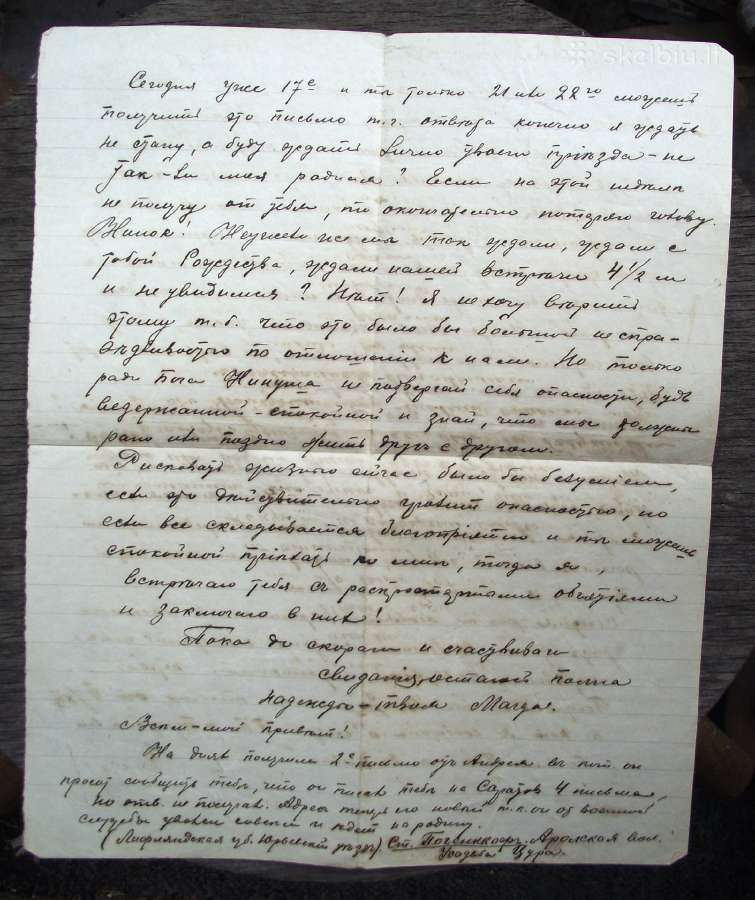 skelbiu.lt
Сегодня уже 17е и ты только 21 или 22го можешь
получить это письмо т.ч. ответа конечно я ждать
не стану, а буду ждать лично твоего пріезда - не
так-ли моя родная? Если на этой недели
не получу от тебя, то окончательно потеряю голову.
Нинок! Неужели же мы так ждали, ждали с
тобой Рождества, ждали нашей встречи 4 1/2 м
и не увидимся? Нет! Я не хочу верить
этому т.б. что это было бы большой неспра-
ведливостью по отношенію к нам. Но только
ради Бога Нинуша не подвергай себя опасности, будь
выдержанной-спокойной и знай, что мы должны
рано или поздно жить друг с другом.
Рисковать жизнью сейчас было бы безуміем,
если это действительно грозит опасностью, но
если все складывается благопріятно и ты можешь
спокойной пріехать ко мне, тогда я
встречаю тебя с распростертыми объятіями
и заключаю в них!
Пока до скораго и счастливаго
свиданія, остаюсь полна
надежды - твоя Магда.
Всем-мой привет!
На днях получила 2е письмо от Андрея в кот. он
просит сообщить тебе, что он писал тебе на Саратов 4 письма,
но отв. не получал. Адрес теперь его новый т.к. он от военной
службы уволен совсем и едет на родину.
(Лифляндская губ. Юрьевскій уездъ) Ст. Боккенгофъ. Арольская вол.
Усадьба Цура.